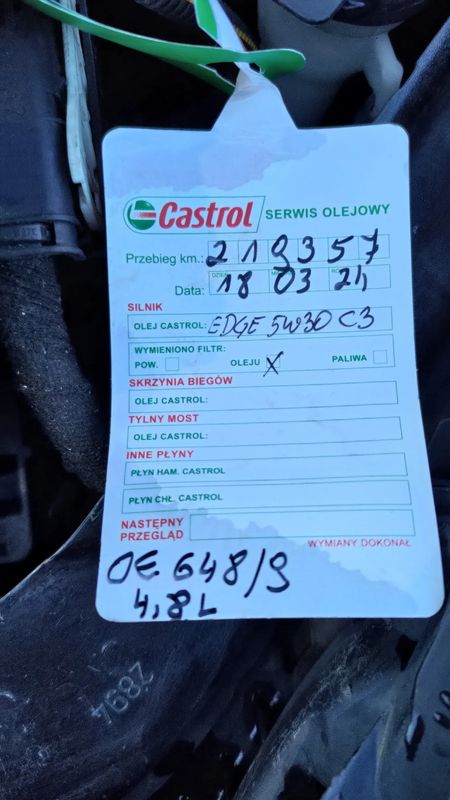 Castrol SERWIS OLEJOWY
Przebieg km.: 219357
Data: 18 03 24
SILNIK
OLEJ CASTROL: EDGE 5W30 C3
WYMIENIONO FILTR:
POW. OLEJU X PALIWA
SKRZYNIA BIEGÓW
OLEJ CASTROL:
TYLNY MOST
OLEJ CASTROL:
INNE PŁYNY
PŁYN HAM. CASTROL
PŁYN CHŁ. CASTROL
NASTĘPNY
PRZEGLĄD
WYMIANY DOKONAŁ
OE 648/9
4,8 L
2894